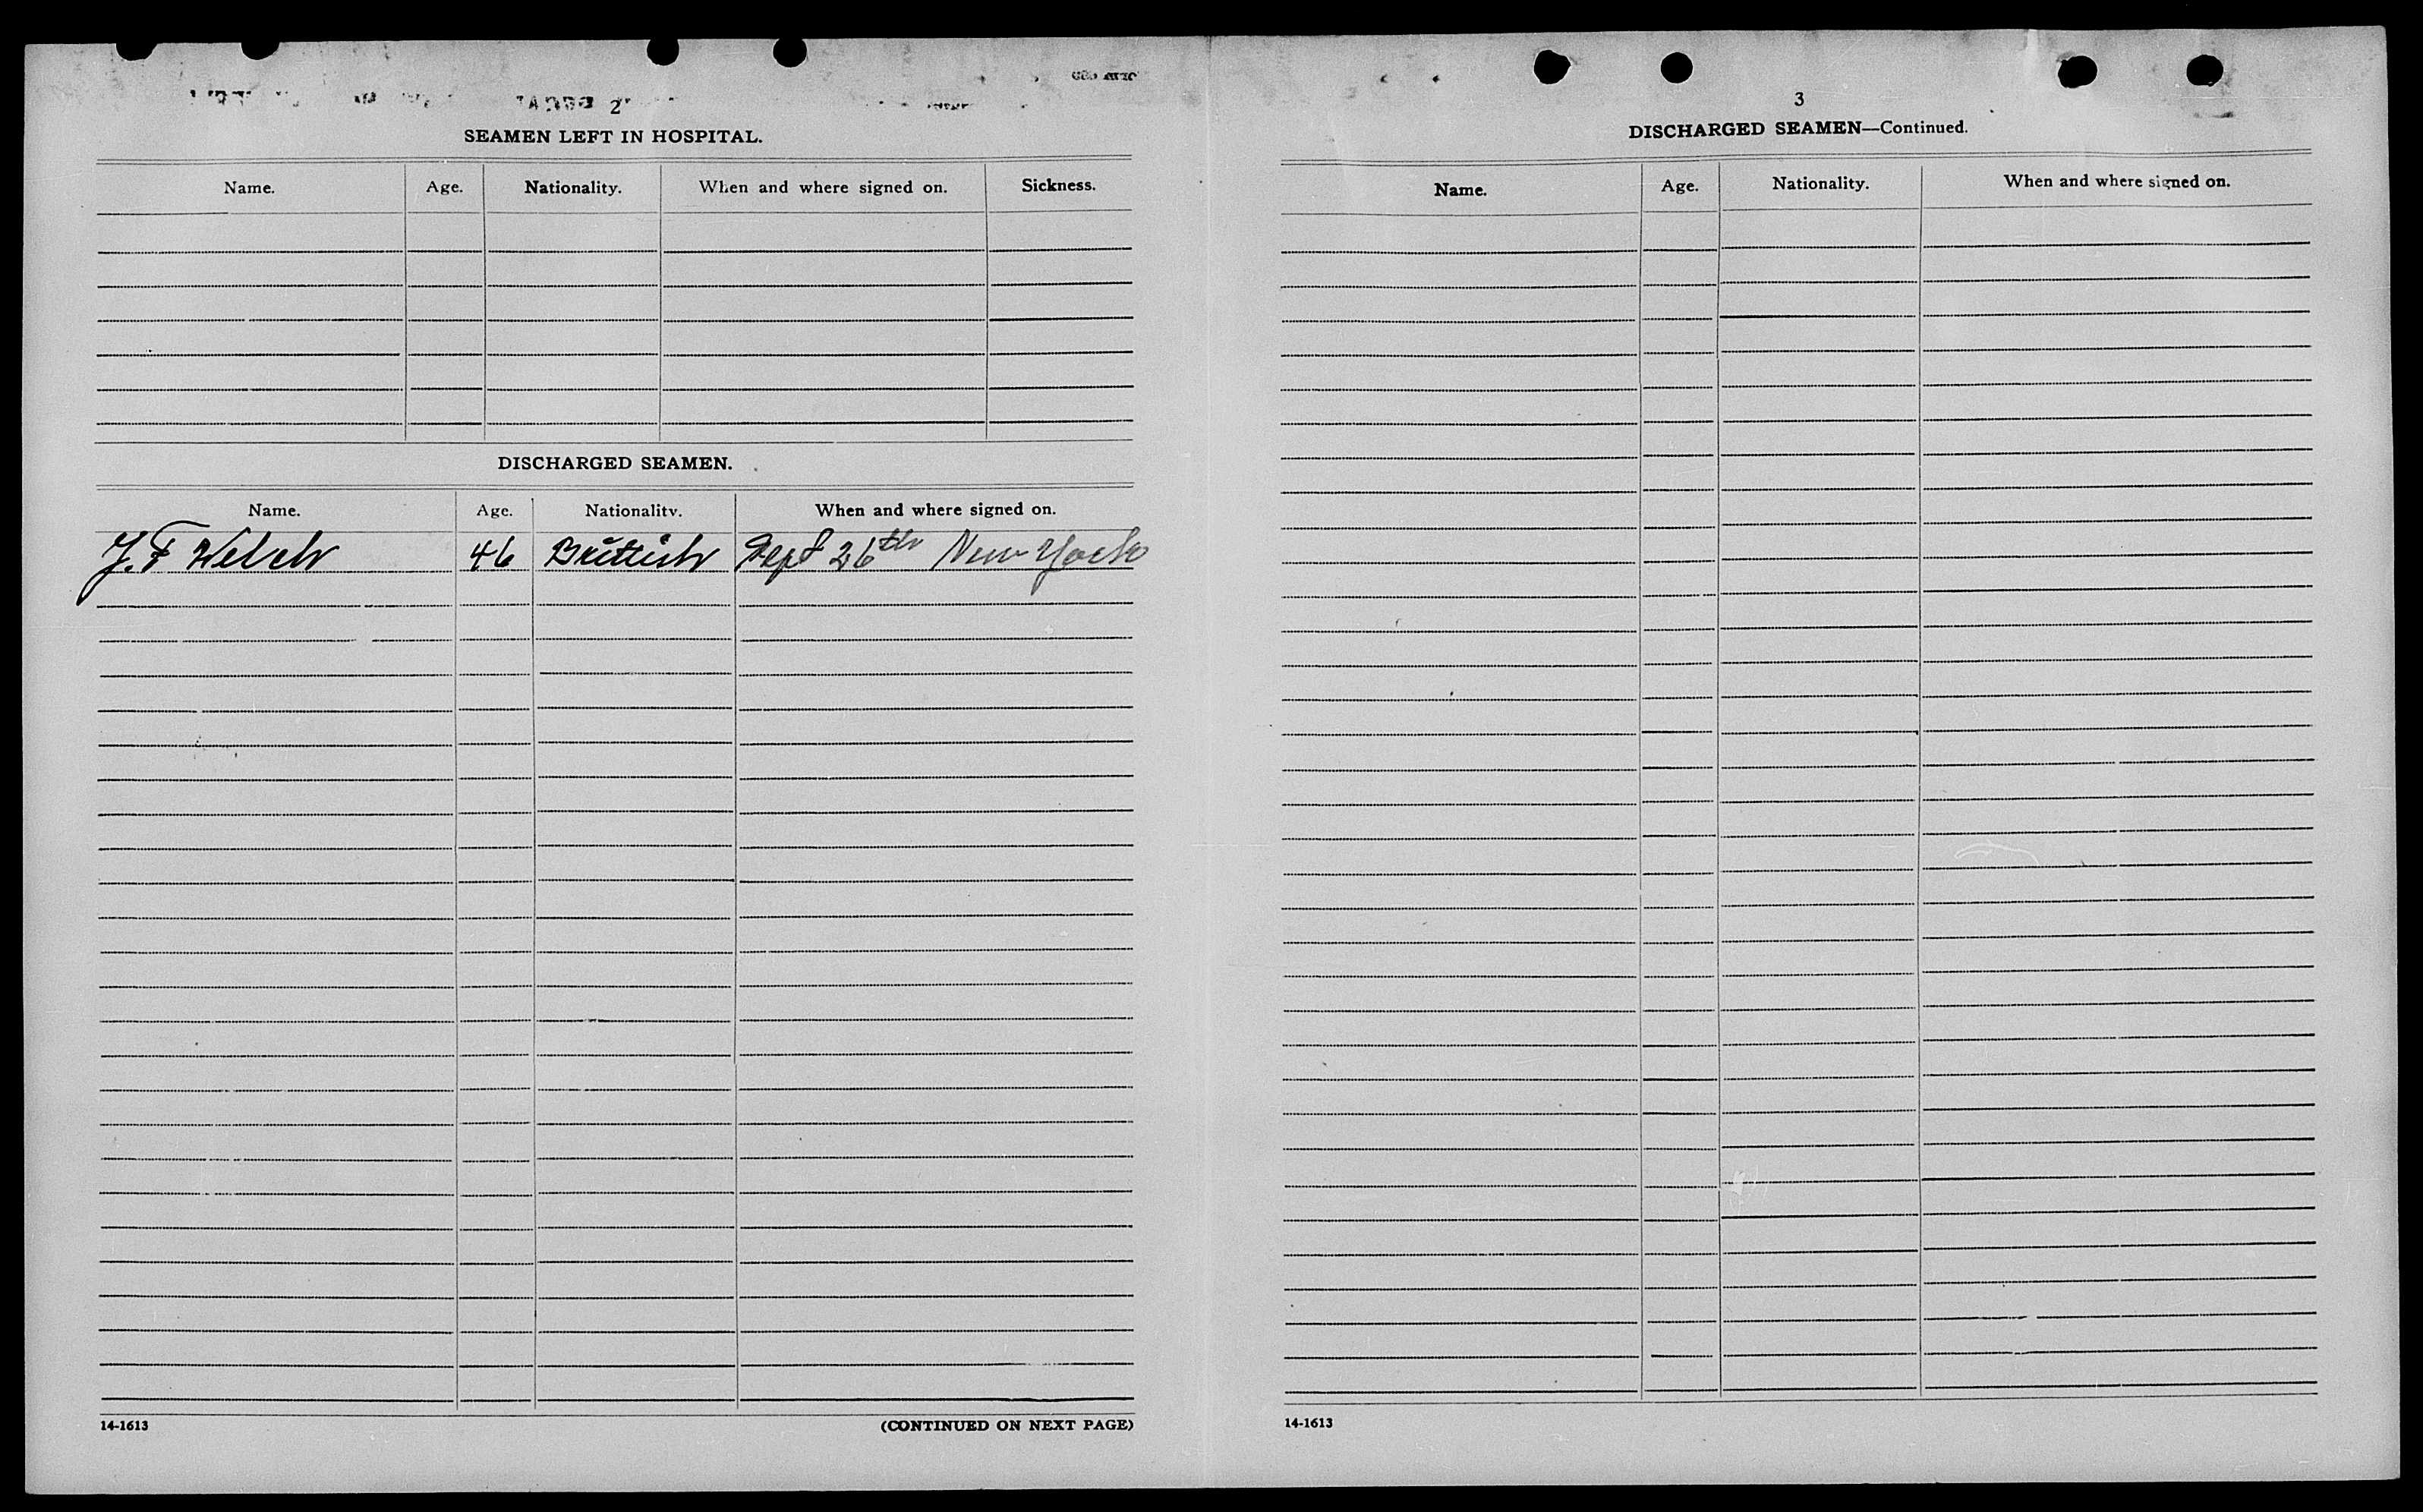 2
SEAMEN LEFT IN HOSPITAL.
Name. Age. Nationality. When and where signed on. Sickness.
DISCHARGED SEAMEN.
Name. Age. Nationality. When and where signed on.
J. F Welch 46 Brittish Sept 26th New York
14-1613 (CONTINUED ON NEXT PAGE)
3
DISCHARGED SEAMEN—Continued.
Name. Age. Nationality. When and where signed on.
14-1613